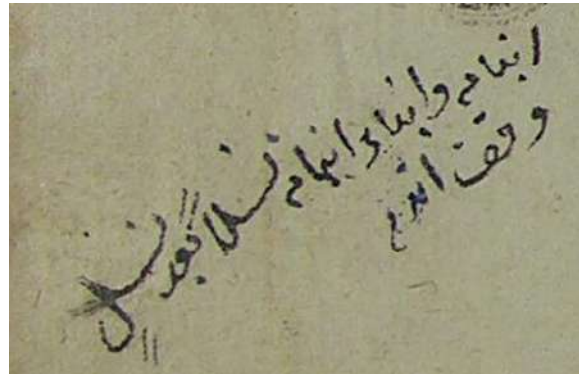 ابنامه وابناء ابنامه نسلا بعد نسل
وقف اندم